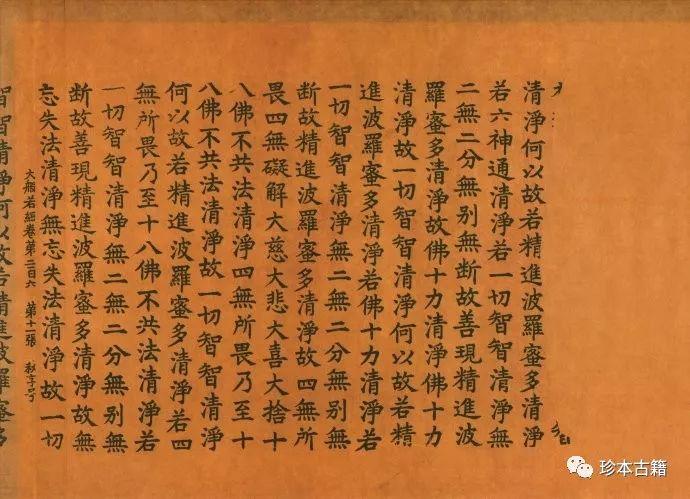 清淨何以故若精進波羅蜜多清淨
若六神通清淨若一切智智清淨無
二無二分無別無断故善現精進波
羅蜜多清淨故佛十力清淨佛十力
清淨故一切智智清淨何以故若精
進波羅蜜多清淨若佛十力清淨若
一切智智清淨無二無二分無別無
断故精進波羅蜜多清淨故四無所
畏四無礙解大慈大悲大喜大捨十
八佛不共法清淨四無所畏乃至十
八佛不共法清淨故一切智智清淨
何以故若精進波羅蜜多清淨若四
無所畏乃至十八佛不共法清淨若
一切智智清淨無二無二分無別無
断故善現精進波羅蜜多清淨故無
忘失法清淨無忘失法清淨故一切
大般若經卷第二百六 第十一張 秋字号
智智清淨何以故若精進波羅蜜多
珍本古籍